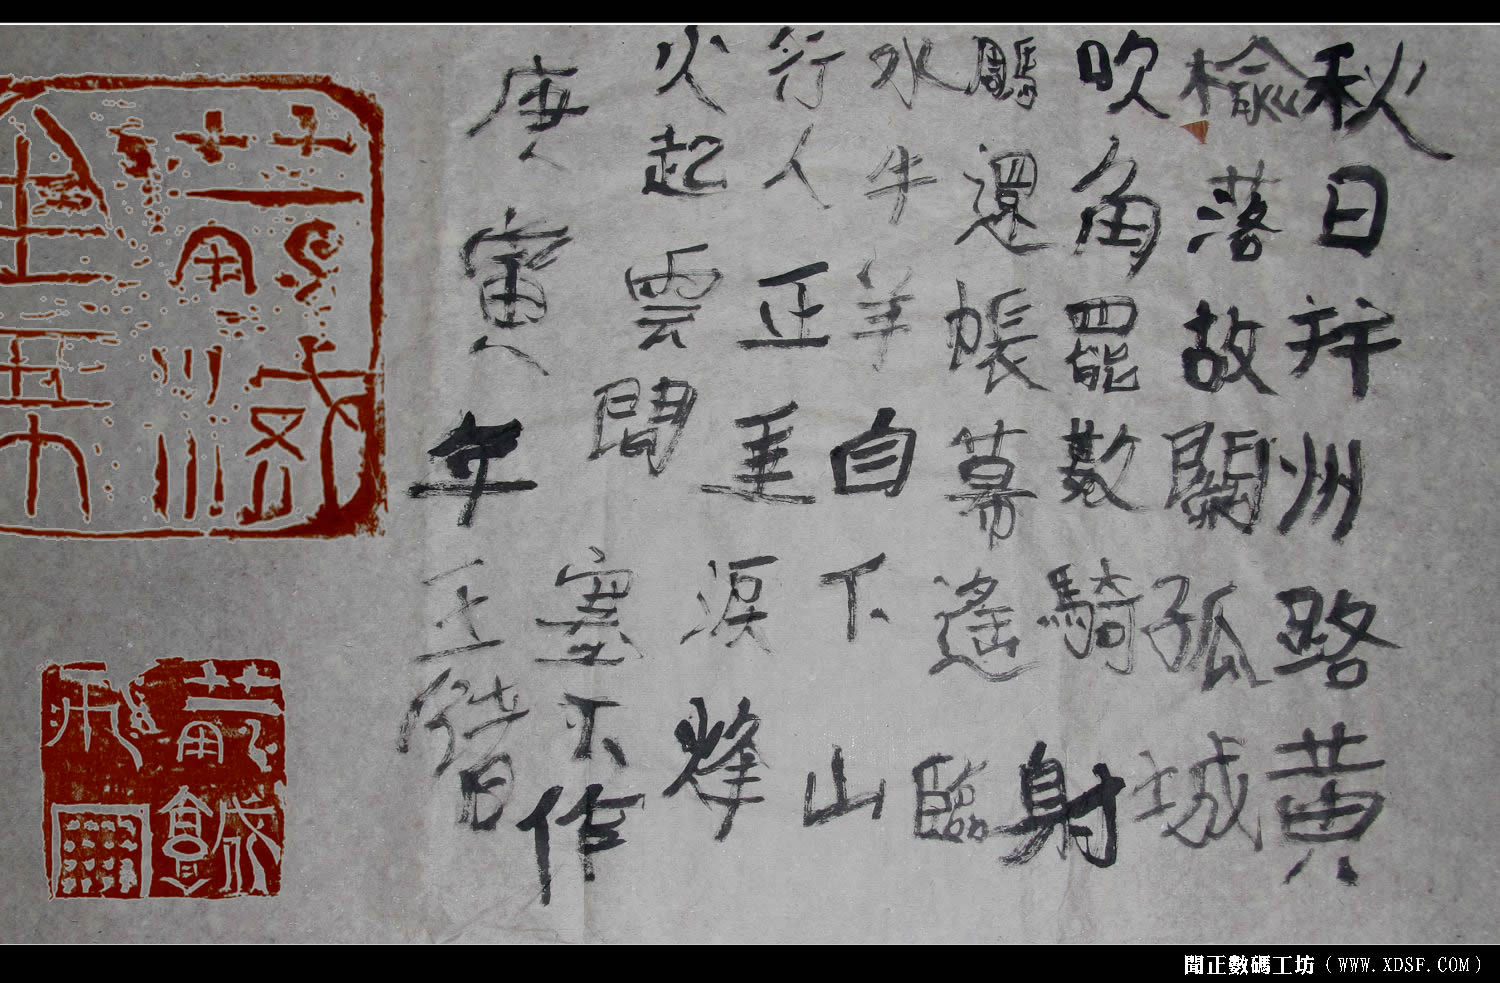 秋日并州路黄
榆落故關孤城
吹角罷數騎射
鵰還帳幕遙臨
水牛羊自下山
行人正垂淚烽
火起雲間塞下作
庚寅年王
聞正數碼工坊（WWW.XDSF.COM）